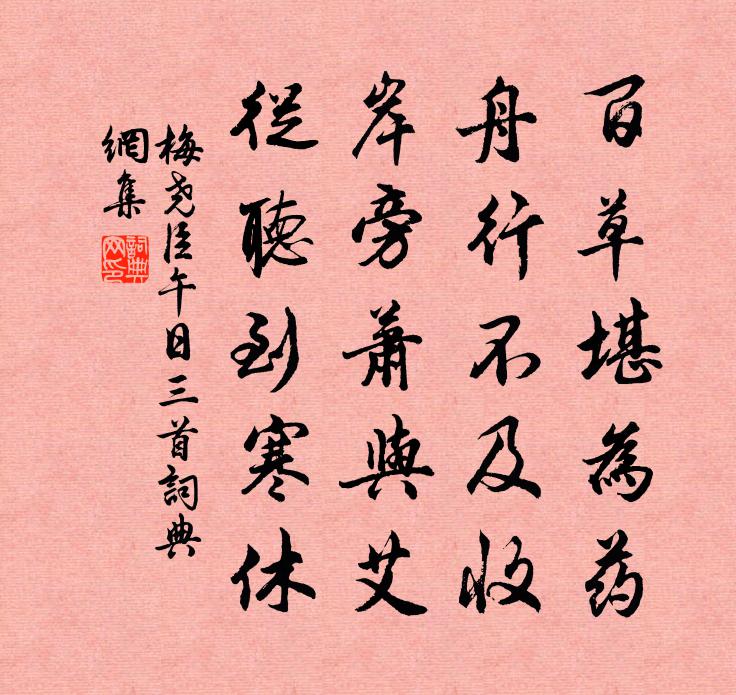 百草堪為药
舟行不及收
岸旁蕭與艾
從聽到寒休
梅尧臣午日三首詞典
網集
詞典網印